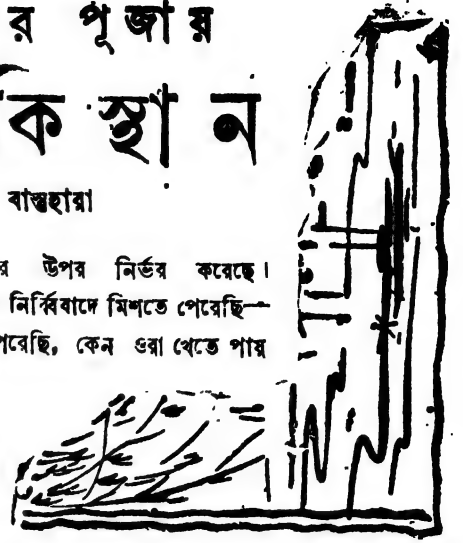 র পূজায়
কি স্থান
বাস্তুহারা
র উপর নির্ভর করেছে।
নির্ব্বিবাদে মিশতে পেরেছি—
পেরেছি, কেন ওরা খেতে পায়